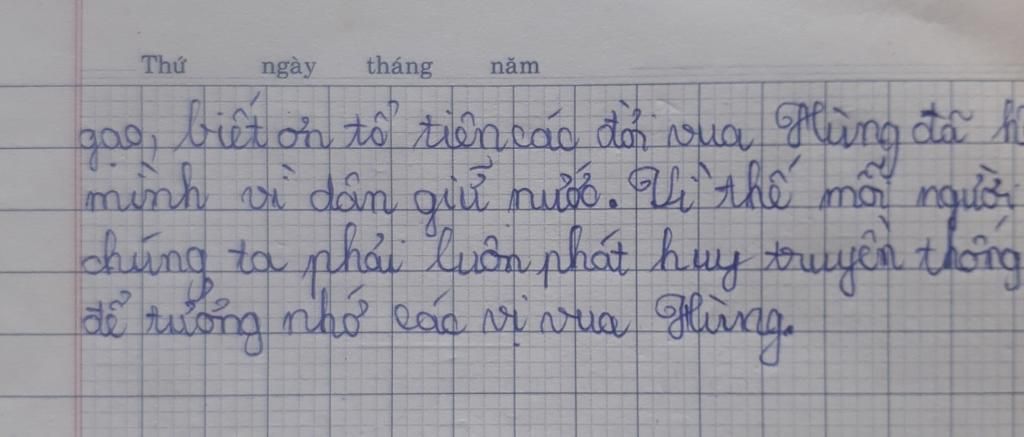 Thứ ngày tháng năm
gạo, biết ơn tổ tiên các đời vua Hùng đã
mình vì dân giữ nước. Vì thế mỗi người
chúng ta phải luôn phát huy truyền thống
để tưởng nhớ các vị vua Hùng.